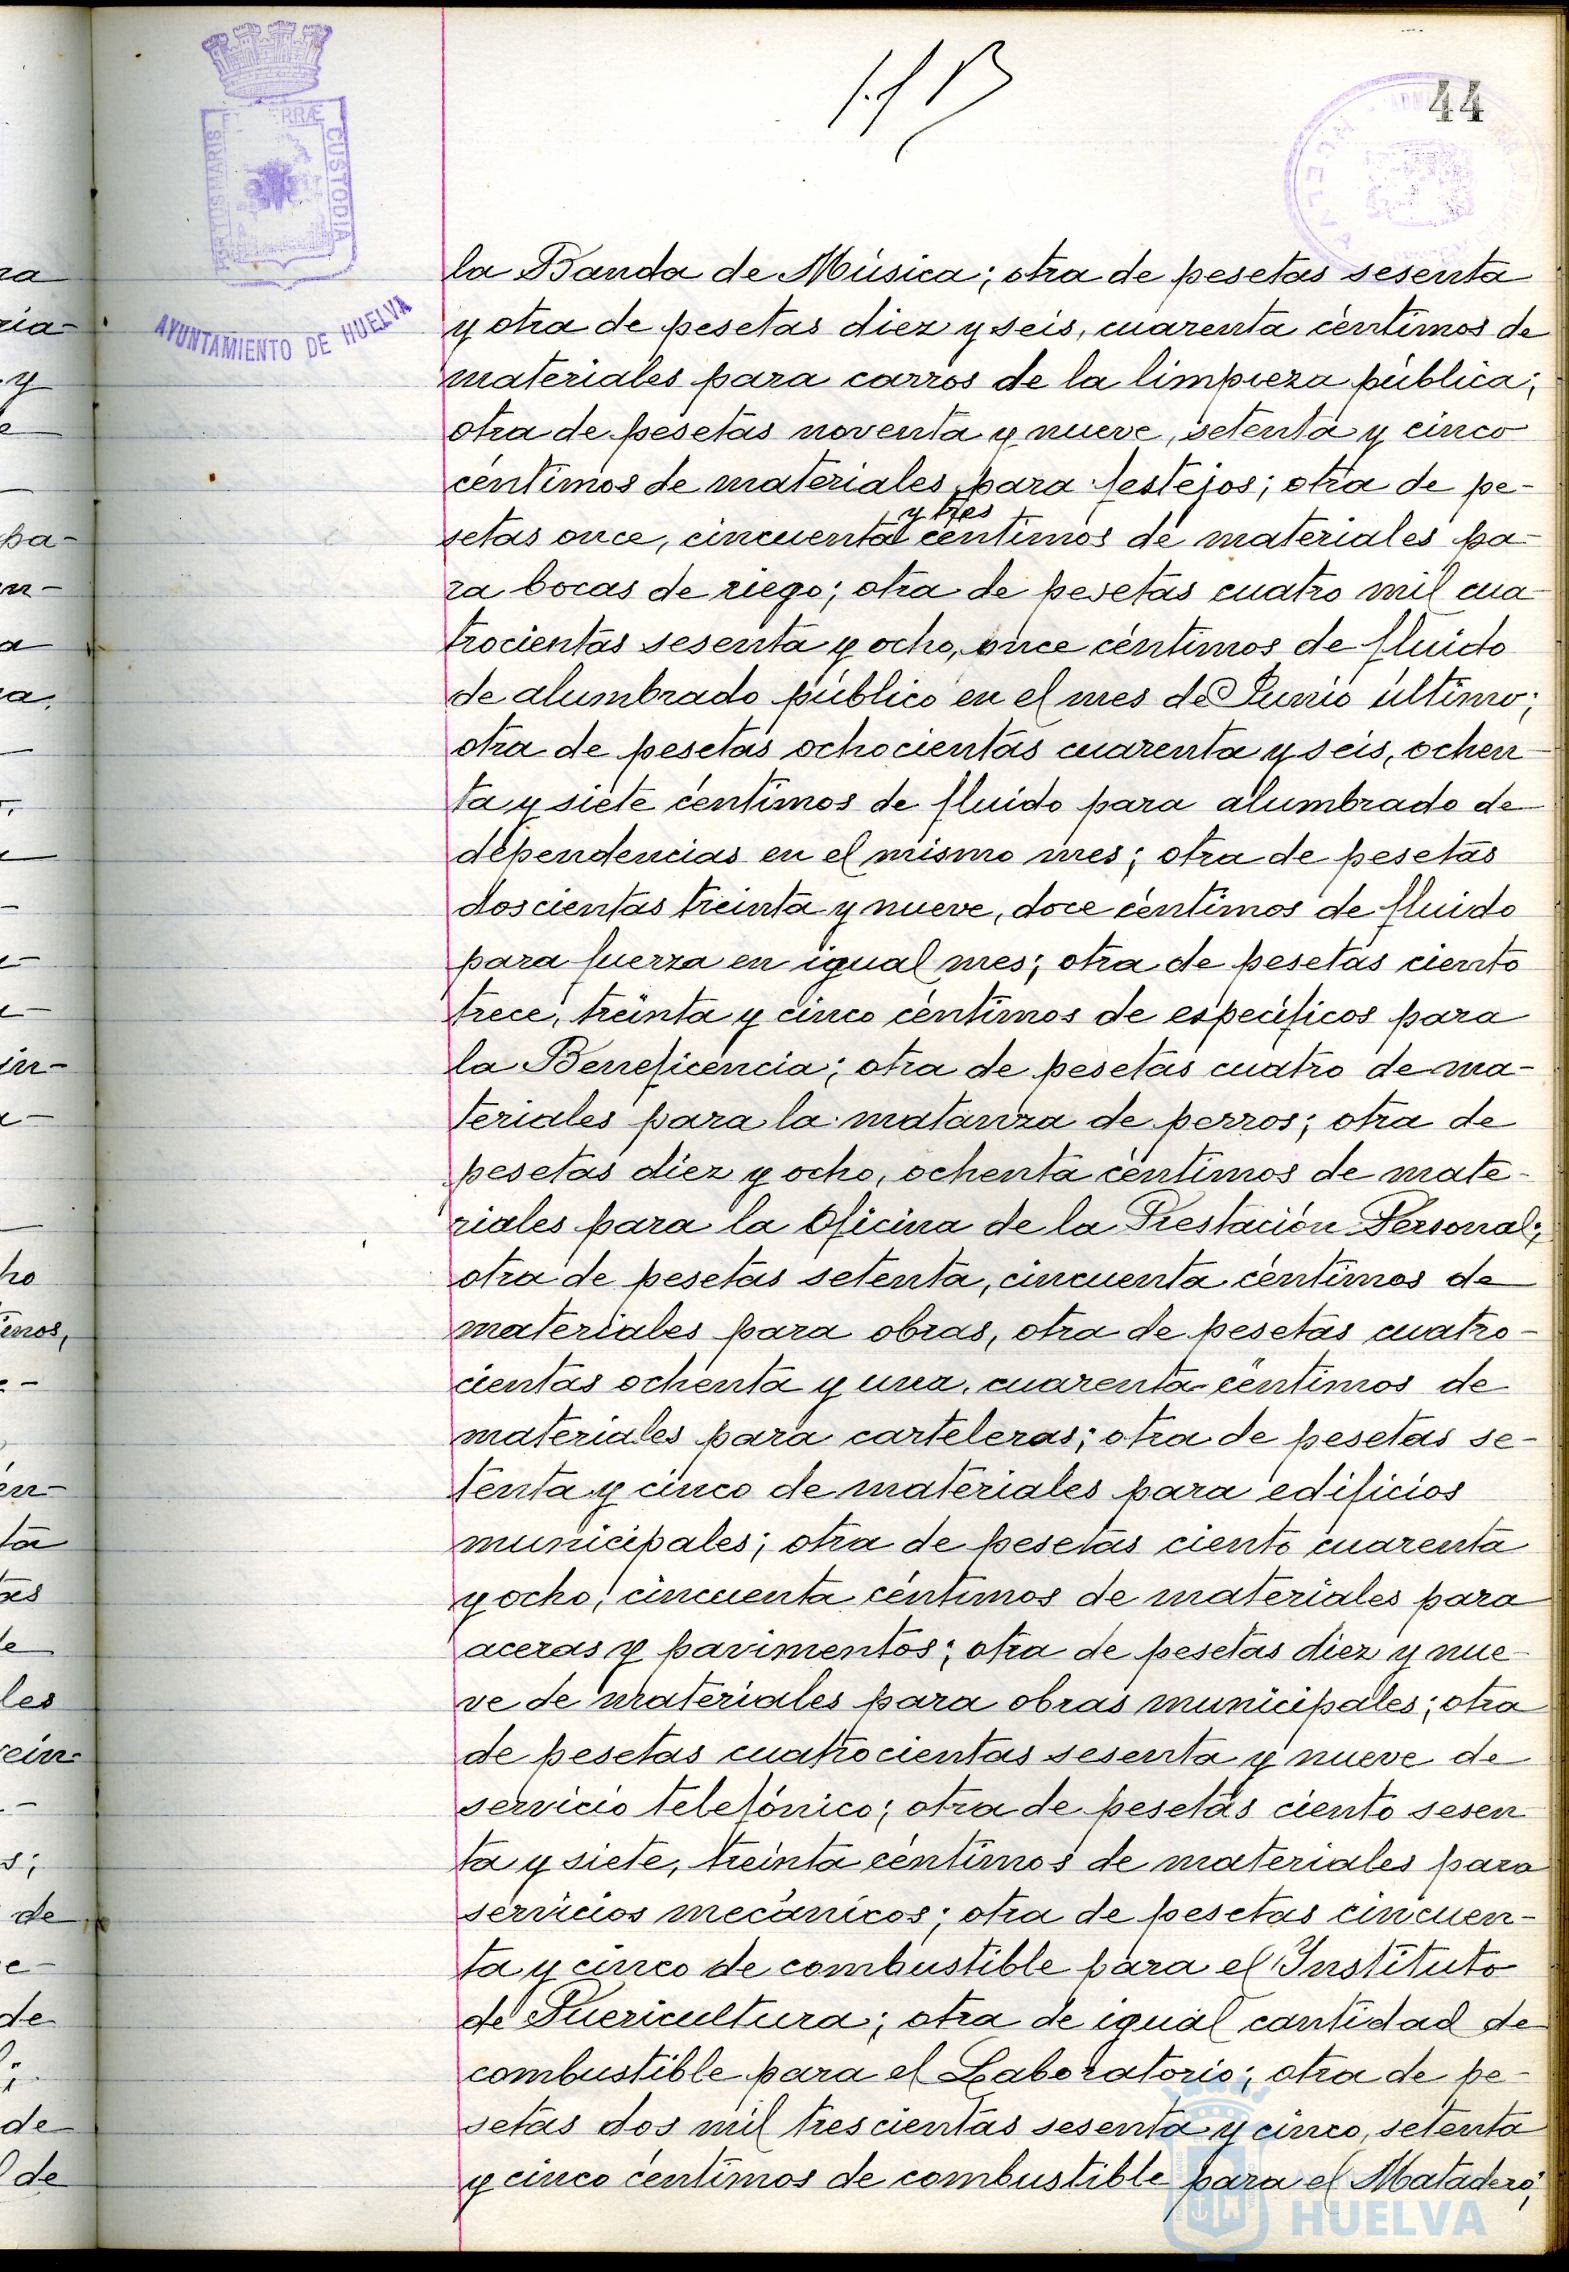 44
PORTUS MARIS ET TERRÆ CUSTODIA
AYUNTAMIENTO DE HUELVA
la Banda de Música; otra de pesetas sesenta
y otra de pesetas diez y seis, cuarenta céntimos de
materiales para carros de la limpieza pública;
otra de pesetas noventa y nueve, setenta y cinco
céntimos de materiales para festejos; otra de pe-
y tres
setas once, cincuenta céntimos de materiales pa-
ra bocas de riego; otra de pesetas cuatro mil cua-
trocientas sesenta y ocho, once céntimos de fluido
de alumbrado público en el mes de Junio último;
otra de pesetas ochocientas cuarenta y seis, ochen-
ta y siete céntimos de fluido para alumbrado de
dependencias en el mismo mes; otra de pesetas
doscientas treinta y nueve, doce céntimos de fluido
para fuerza en igual mes; otra de pesetas ciento
trece, treinta y cinco céntimos de específicos para
la Beneficencia; otra de pesetas cuatro de ma-
teriales para la matanza de perros; otra de
pesetas diez y ocho, ochenta céntimos de mate-
riales para la Oficina de la Prestación Personal;
otra de pesetas setenta, cincuenta céntimos de
materiales para obras, otra de pesetas cuatro-
cientas ochenta y una, cuarenta céntimos de
materiales para carteleras; otra de pesetas se-
tenta y cinco de materiales para edificios
municipales; otra de pesetas ciento cuarenta
y ocho, cincuenta céntimos de materiales para
aceras y pavimentos; otra de pesetas diez y nue-
ve de materiales para obras municipales; otra
de pesetas cuatrocientas sesenta y nueve de
servicio telefónico; otra de pesetas ciento sesen-
ta y siete, treinta céntimos de materiales para
servicios mecánicos; otra de pesetas cincuen-
ta y cinco de combustible para el Instituto
de Puericultura; otra de igual cantidad de
combustible para el Laboratorio; otra de pe-
setas dos mil trescientas sesenta y cinco, setenta
y cinco céntimos de combustible para el Matadero;
HUELVA